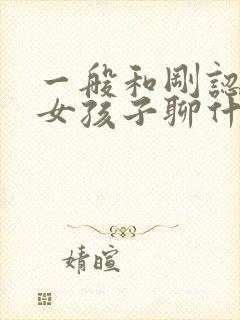 一般和剛認
女孩子聊什
婧暄